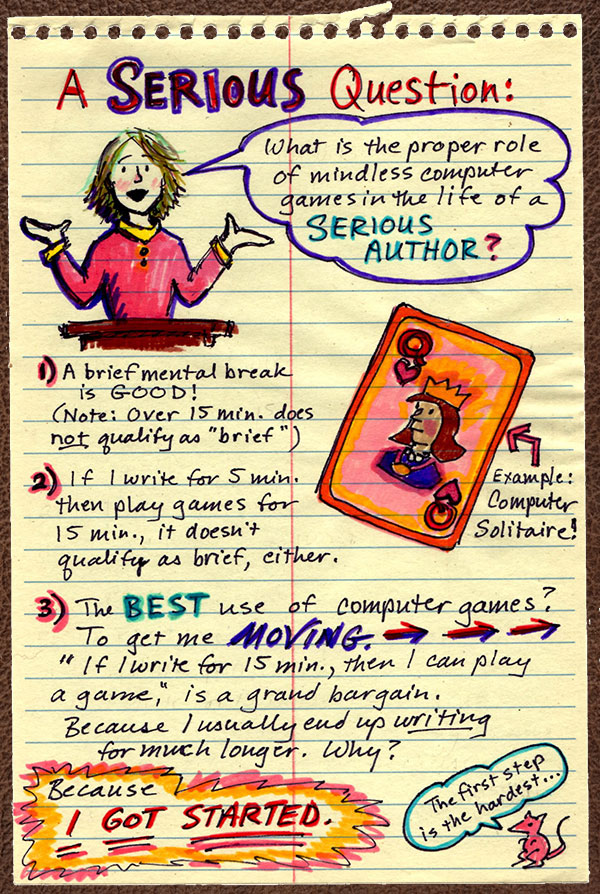 A SERIOUS Question:
What is the proper role
of mindless computer
games in the life of a
SERIOUS
AUTHOR?
1) A brief mental break
is GOOD!
(Note: Over 15 min. does
not qualify as "brief")
2) If I write for 5 min.
then play games for
15 min., it doesn't
qualify as brief, either.
Q
Q
Example:
Computer
Solitaire!
3) The BEST use of computer games?
To get me MOVING.
"If I write for 15 min., then I can play
a game," is a grand bargain.
Because I usually end up writing
for much longer. Why?
Because
I GOT STARTED.
The first step
is the hardest...